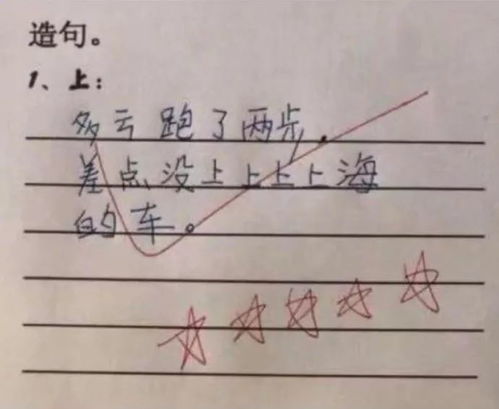 造句。
1、上：
多云跑了两步，
差点没上上上上海
的车。